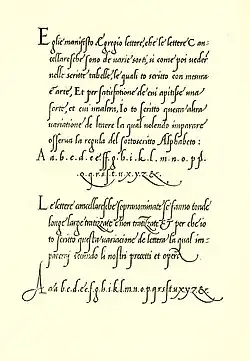 Eglie manifesto Egregio lettore, che le lettere Can-
cellaresche sono de varie sorti, si come poi veder
nelle scritte tabelle, le quali to scritto con mesura
e arte, Et per satisfatione de chi apitisse una
sorte, et chi unaltra, Io to scritto questa altra
variatione de lettere la qual volendo imparare
osserva la regula del sottoscritto Alphabeto:
A a.b.c.d.e.e.ff.g.h.i.k.l.m.n.o.p.p.
q.q.r.s.s.t.u.x.y.z.&.
Le lettere cancellaresche sopranominate se fanno tonde
longe large tratizzate e non tratizzate ET per che io
to scritto questa variacione de lettera la qual im-
parerai secundo li nostri precetti et opera
A a.a b c d.e.e.f.g h i k l m n o p q r s s t u x y z &